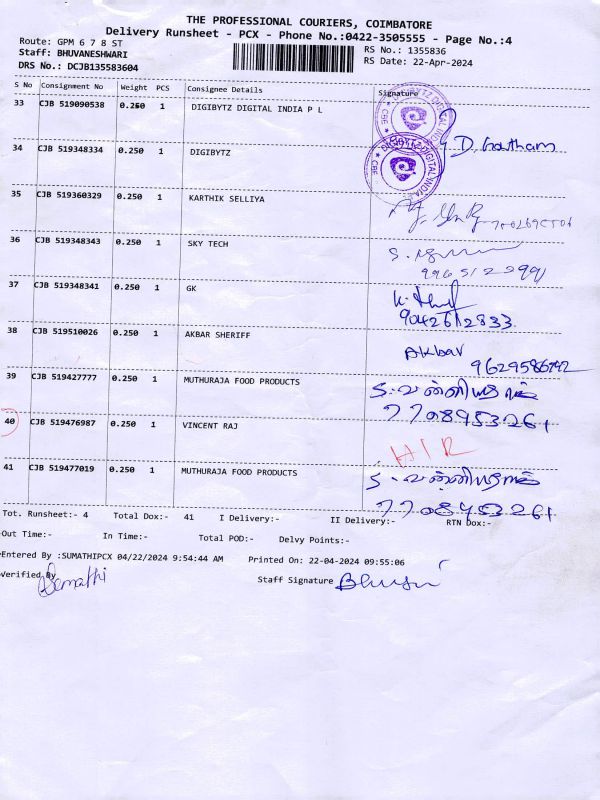 THE PROFESSIONAL COURIERS, COIMBATORE
Delivery Runsheet - PCX - Phone No.:0422-3505555 - Page No.:4
Route: GPM 6 7 8 ST RS No.: 1355836
Staff: BHUVANESHWARI RS Date: 22-Apr-2024
DRS No.: DCJB135583604
S No Consignment No Weight PCS Consignee Details Signature
33 CJB 519090538 0.250 1 DIGIBYTZ DIGITAL INDIA P L
DIGIBYTZ DIGITAL INDIA
CBE
D. Gowtham
34 CJB 519348334 0.250 1 DIGIBYTZ
DIGIBYTZ DIGITAL INDIA
CBE
35 CJB 519360329 0.250 1 KARTHIK SELLIYA
36 CJB 519348343 0.250 1 SKY TECH
37 CJB 519348341 0.250 1 GK
9042612833
38 CJB 519510026 0.250 1 AKBAR SHERIFF Akbar
39 CJB 519427777 0.250 1 MUTHURAJA FOOD PRODUCTS
7708953261
40 CJB 519476987 0.250 1 VINCENT RAJ
41 CJB 519477019 0.250 1 MUTHURAJA FOOD PRODUCTS
7708953261
Tot. Runsheet:- 4 Total Dox:- 41 I Delivery:- II Delivery:- RTN Dox:-
Out Time:- In Time:- Total POD:- Delvy Points:-
Entered By :SUMATHIPCX 04/22/2024 9:54:44 AM Printed On: 22-04-2024 09:55:06
Verified By Sumathi Staff Signature